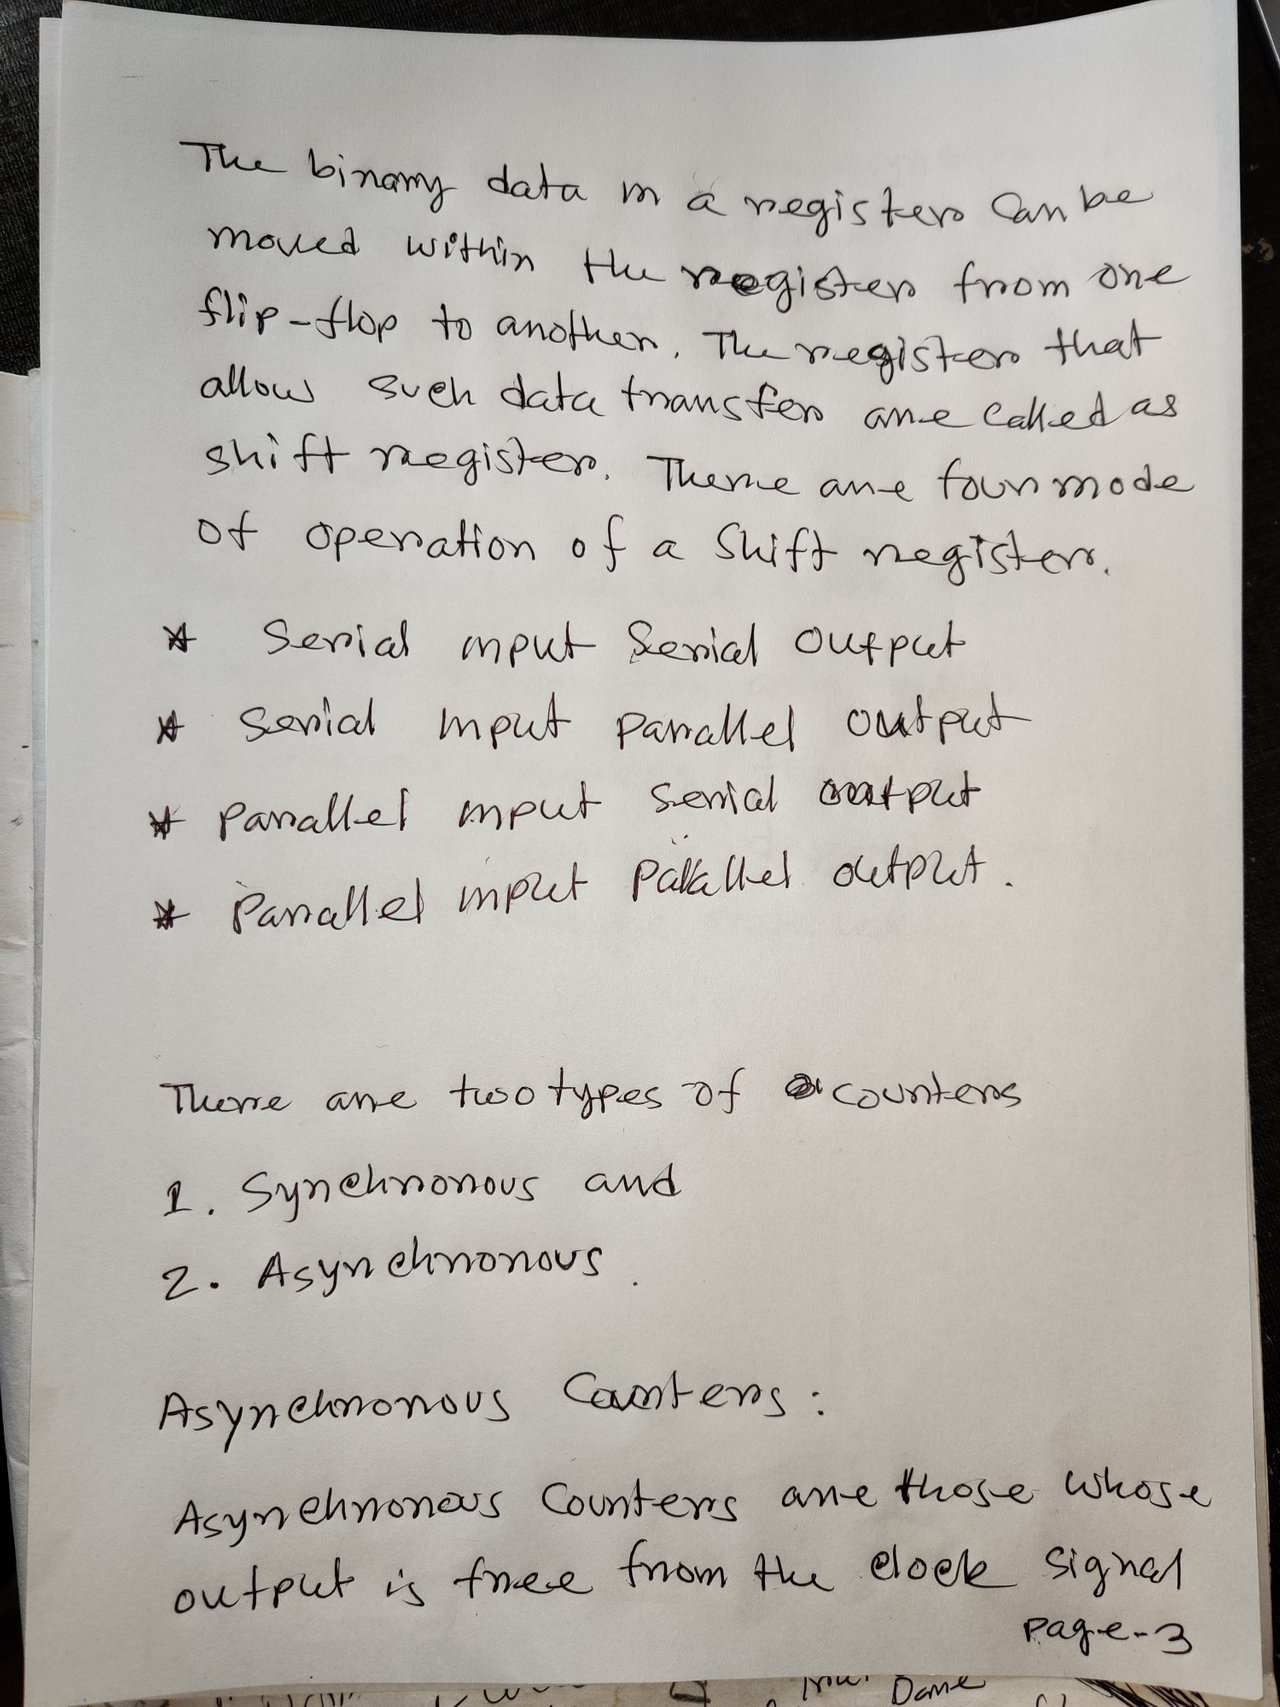 The binary data in a register can be
moved within the register from one
flip-flop to another. The register that
allow such data transfer are called as
shift register. There are four mode
of operation of a shift register.
* Serial input Serial output
* Serial input parallel output
* parallel input serial output
* parallel input parallel output.
There are two types of counters
1. Synchronous and
2. Asynchronous.
Asynchronous Counters:
Asynchronous Counters are those whose
output is free from the clock signal
page-3
Dame